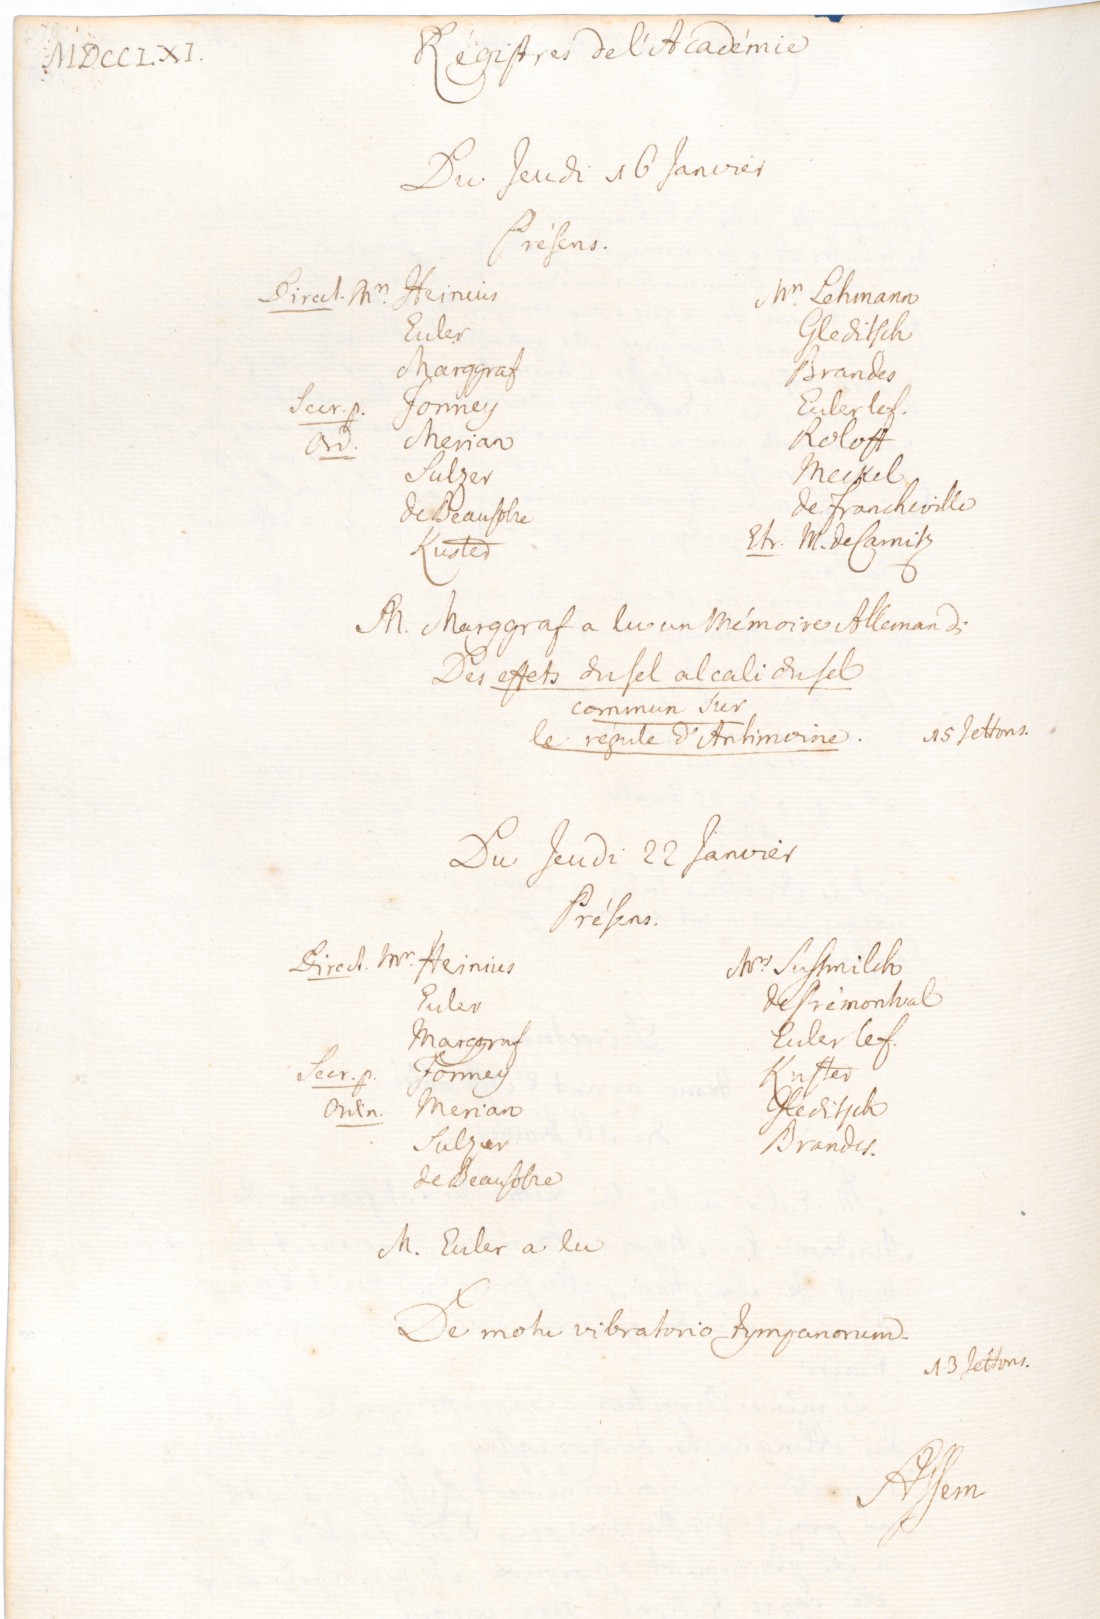 MDCCLXI.
Régistres de l'Académie
Du Jeudi 16 Janvier
Présens.
Direct. Mrs. Heinius
Euler
Marggraf
Secr. p. Formey
Ord. Merian
Sulzer
de Beausobre
Kuster
Mrs Lehmann
Gleditsch
Brandes
Euler lef.
Roloff
Meckel
de Francheville
Etr. M. de Carnitz
M. Marggraf a lu un Mémoire Allemand;
Des effets du sel alcali du sel
commun sur
le régule d'Antimoine.
15 Jettons.
Du Jeudi 22 Janvier
Présens.
Direct. Mrs. Heinius
Euler
Marggraf
Secr. p. Formey
Ordn. Merian
Sulzer
de Beausobre
Mrs Sussmilch
de Prémontval
Euler lef.
Kuster
Gleditsch
Brandes.
M. Euler a lu
De motu vibratorio tympanorum.
13 Jettons.
Assem